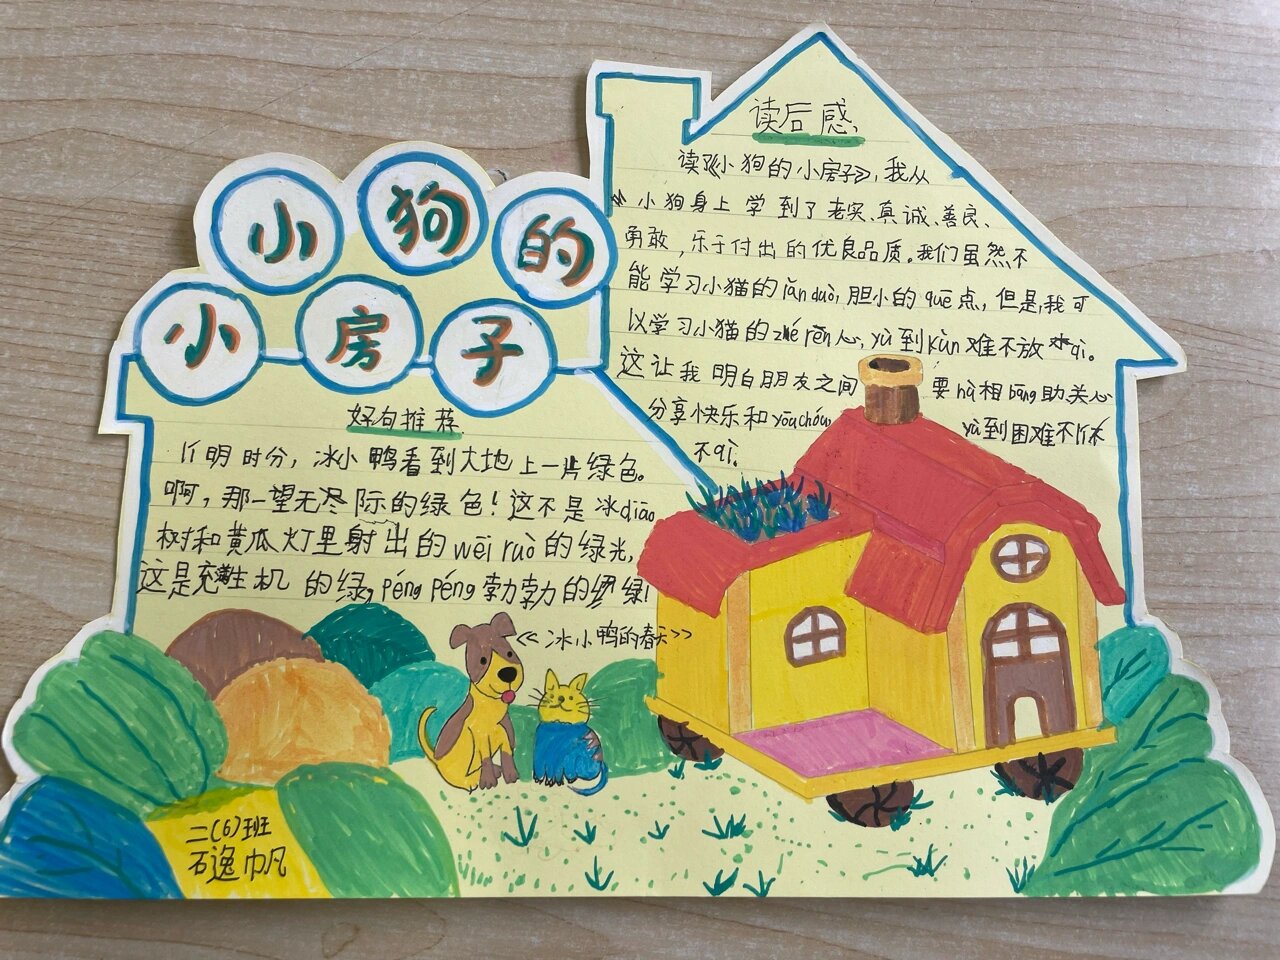 小狗的
小房子
读后感
读《小狗的小房子》,我从
小狗身上学到了老实、真诚、善良、
勇敢,乐于付出的优良品质。我们虽然不
能学习小猫的lǎn duò,胆小的quē点,但是,我可
以学习小猫的zhé rèn心,yù到kùn难不放qì。
这让我明白朋友之间要hù相bāng助关心
分享快乐和yōu chóu,yù到困难不
不qì。
好句推荐
明时分,冰小鸭看到大地上一片绿色。
啊,那一望无尽际的绿色!这不是冰diāo
树和黄瓜灯里射出的wēi ruò的绿光,
这是充生机的绿,péng péng勃勃的绿!
《冰小鸭的春天》
二(6)班
石逸帆